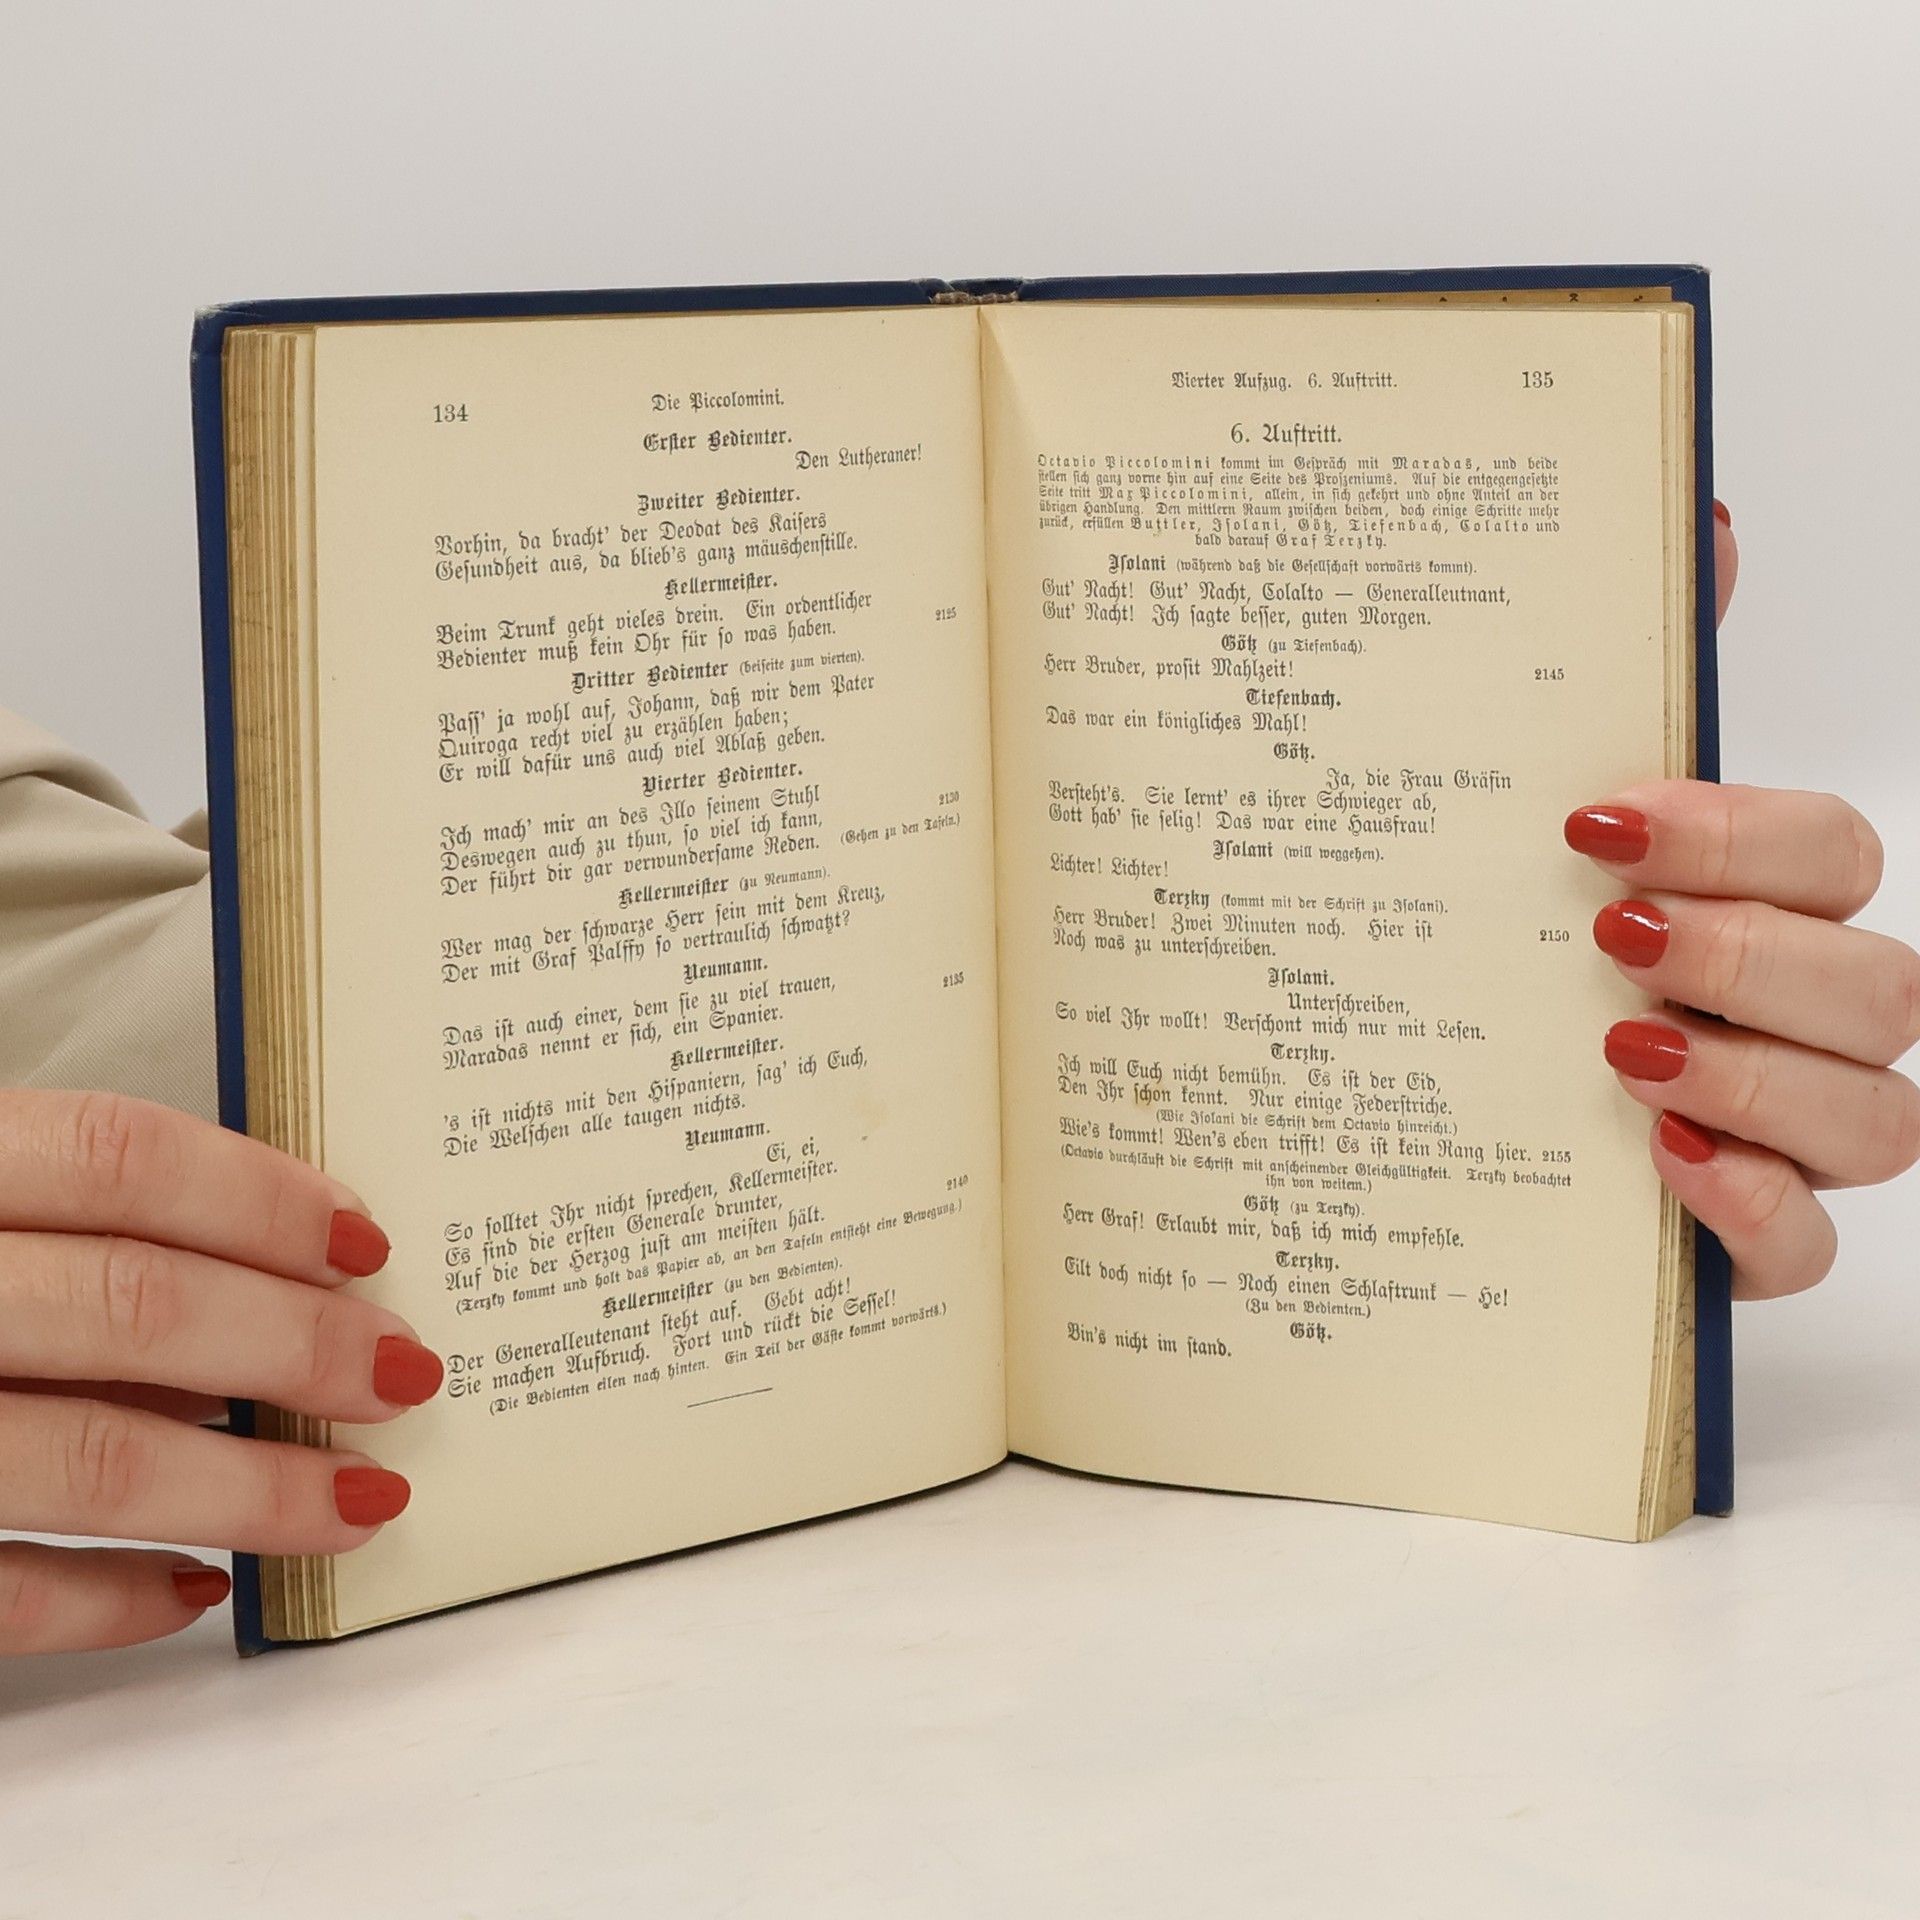 134
Die Piccolomini.
Erster Bedienter.
Den Lutheraner!
Zweiter Bedienter.
Vorhin, da bracht' der Deodat des Kaisers
Gesundheit aus, da blieb's ganz mäuschenstille.
Kellermeister.
Beim Trunk geht vieles drein. Ein ordentlicher 2125
Bedienter muß kein Ohr für so was haben.
Dritter Bedienter (beiseite zum vierten).
Pass' ja wohl auf, Johann, daß wir dem Pater
Quiroga recht viel zu erzählen haben;
Er will dafür uns auch viel Ablaß geben.
Vierter Bedienter.
Ich mach' mir an des Illo seinem Stuhl 2130
Deswegen auch zu thun, so viel ich kann,
Der führt dir gar verwundersame Reden. (Gehen zu den Tafeln.)
Kellermeister (zu Neumann).
Wer mag der schwarze Herr sein mit dem Kreuz,
Der mit Graf Palffy so vertraulich schwatzt?
Neumann.
Das ist auch einer, dem sie zu viel trauen, 2135
Maradas nennt er sich, ein Spanier.
Kellermeister.
's ist nichts mit den Hispaniern, sag' ich Euch,
Die Welschen alle taugen nichts.
Neumann.
Ei, ei,
So solltet Ihr nicht sprechen, Kellermeister.
Es sind die ersten Generale drunter, 2140
Auf die der Herzog just am meisten hält.
(Terzky kommt und holt das Papier ab, an den Tafeln entsteht eine Bewegung.)
Kellermeister (zu den Bedienten).
Der Generalleutenant steht auf. Gebt acht!
Sie machen Aufbruch. Fort und rückt die Sessel!
(Die Bedienten eilen nach hinten. Ein Teil der Gäste kommt vorwärts.)
Vierter Aufzug. 6. Auftritt.
135
6. Auftritt.
Octavio Piccolomini kommt im Gespräch mit Maradas, und beide
stellen sich ganz vorne hin auf eine Seite des Proszeniums. Auf die entgegengesetzte
Seite tritt Max Piccolomini, allein, in sich gekehrt und ohne Anteil an der
übrigen Handlung. Den mittlern Raum zwischen beiden, doch einige Schritte mehr
zurück, erfüllen Buttler, Isolani, Götz, Tiefenbach, Colalto und
bald darauf Graf Terzky.
Isolani (während daß die Gesellschaft vorwärts kommt).
Gut' Nacht! Gut' Nacht, Colalto — Generalleutnant,
Gut' Nacht! Ich sagte besser, guten Morgen.
Götz (zu Tiefenbach).
Herr Bruder, prosit Mahlzeit! 2145
Tiefenbach.
Das war ein königliches Mahl!
Götz.
Ja, die Frau Gräfin
Versteht's. Sie lernt' es ihrer Schwieger ab,
Gott hab' sie selig! Das war eine Hausfrau!
Isolani (will weggehen).
Lichter! Lichter!
Terzky (kommt mit der Schrift zu Isolani).
Herr Bruder! Zwei Minuten noch. Hier ist 2150
Noch was zu unterschreiben.
Isolani.
Unterschreiben,
So viel Ihr wollt! Verschont mich nur mit Lesen.
Terzky.
Ich will Euch nicht bemühn. Es ist der Eid,
Den Ihr schon kennt. Nur einige Federstriche.
(Wie Isolani die Schrift dem Octavio hinreicht.)
Wie's kommt! Wen's eben trifft! Es ist kein Rang hier. 2155
(Octavio durchläuft die Schrift mit anscheinender Gleichgültigkeit. Terzky beobachtet
ihn von weitem.)
Götz (zu Terzky).
Herr Graf! Erlaubt mir, daß ich mich empfehle.
Terzky.
Eilt doch nicht so — Noch einen Schlaftrunk — He!
(Zu den Bedienten.)
Götz.
Bin's nicht im stand.